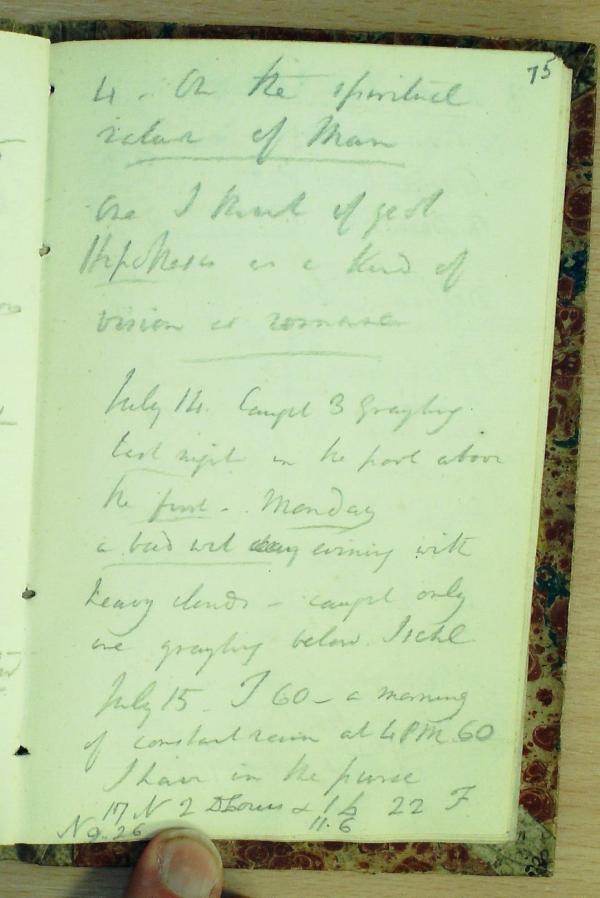 75
4 - On the spiritual
nature of Man
One I think of geol
Hypotheses as a kind of
vision or romance
July 14. Caught 3 grayling
last night in the pool above
the first. Monday
a bad wet evening with
heavy clouds - caught only
one grayling below Ischl
July 15. T 60 - a morning
of constant rain at 4 PM 60
I have in the purse
17 N 2 D Louis & 1/2 22 F
No. 26 11.6